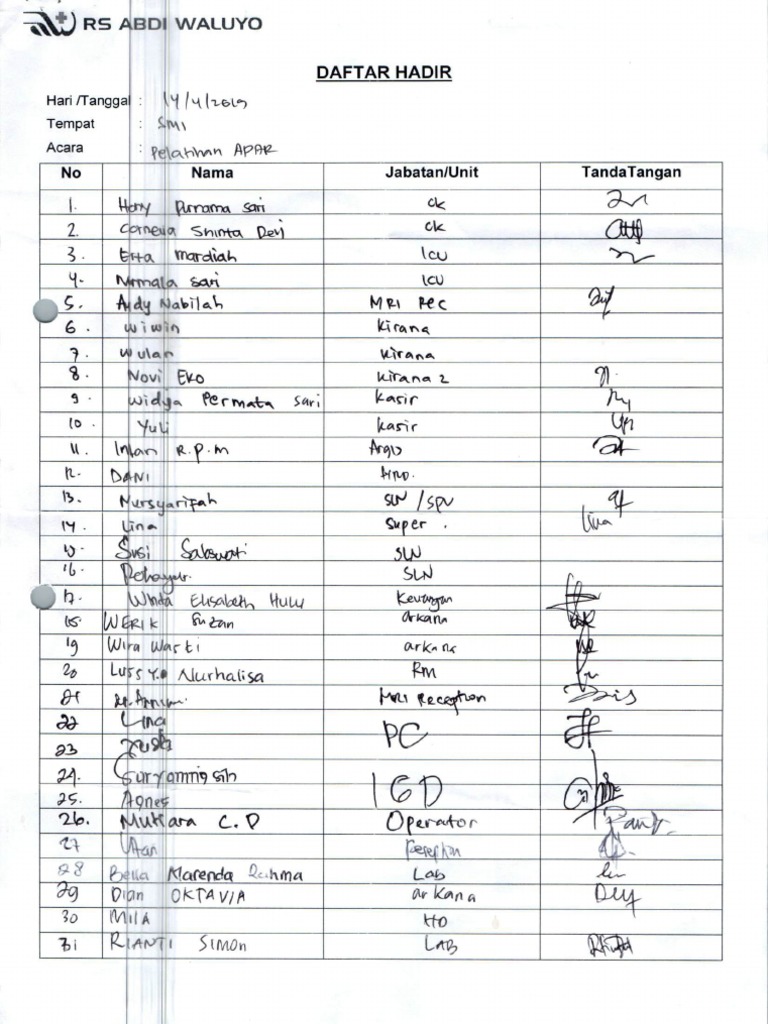 RS ABDI WALUYO
DAFTAR HADIR
Hari /Tanggal : 14/4/2019
Tempat : SMI
Acara : Pelatihan APAR
No Nama Jabatan/Unit TandaTangan
1. Heny Purnama sari OK
2. Cornelia Shinta Devi OK
3. Erta mardiah ICU
4. Nirmala sari ICU
5. Ardy Nabilah MRI Rec
6. wiwin Kirana
7. wulan Kirana
8. Novi Eko Kirana 2
9. Widya Permata sari kasir
10. Yuli kasir
11. Intan R.P.M Argo
12. DANI
13. Nursyarifah SLN /SPV
14. Lina Super. Lina
15. Susi SLN
16. SLN
17. Elisabeth Hulu Keuangan
18. WERIK Suzan arkana
19 Wira Wasti arkana
20 Nurhalisa RM
21 MRI Reception
22 Lina
23 PC
24. Suryaningsih
25. Agnes IGD
26. Mutiara C.D Operator
27
28 Bella Marenda Rahma Lab
29 Dian OKTAVIA arkana
30 MILA HD
31 RIANTI SIMON LAB